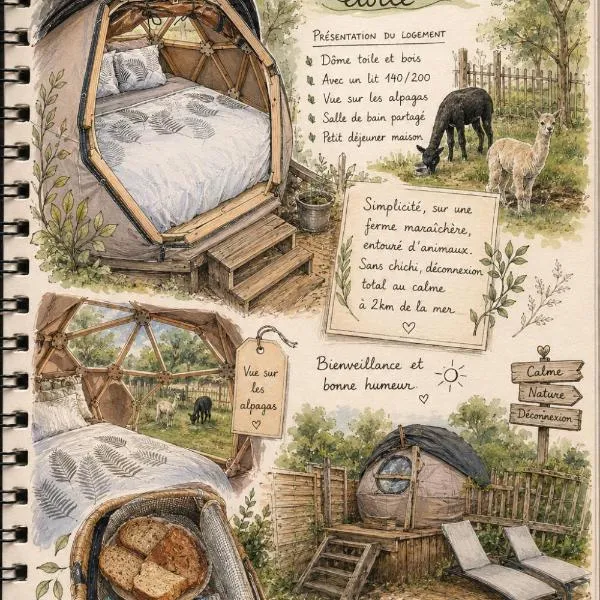 étoile
PRÉSENTATION DU LOGEMENT
Dôme toile et bois
Avec un lit 140/200
Vue sur les alpagas
Salle de bain partagé
Petit déjeuner maison
Simplicité, sur une
ferme maraîchère,
entouré d'animaux.
Sans chichi, déconnexion
total au calme
à 2km de la mer
Vue sur
les
alpagas
Bienveillance et
bonne humeur.
Calme
Nature
Déconnexion